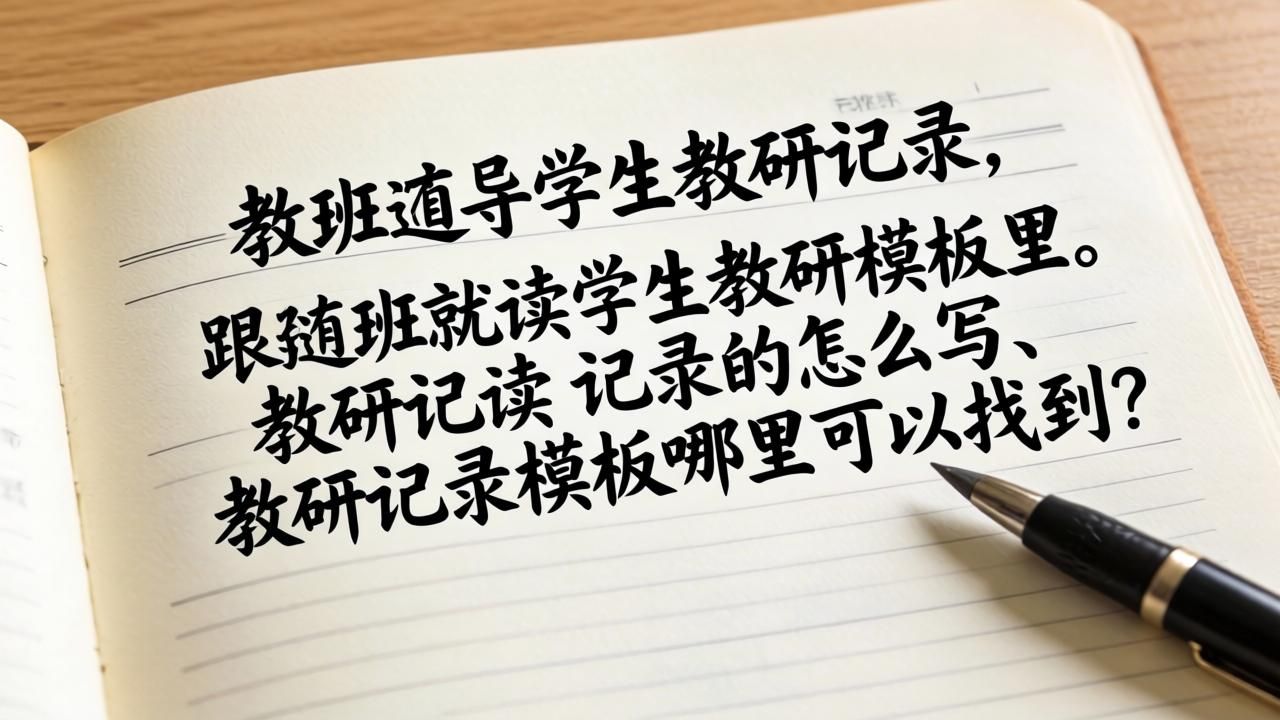 教班道导学生教研记录，
跟随班就读学生教研模板里。
教研记读 记录的怎么写、
教研记录模板哪里可以找到？